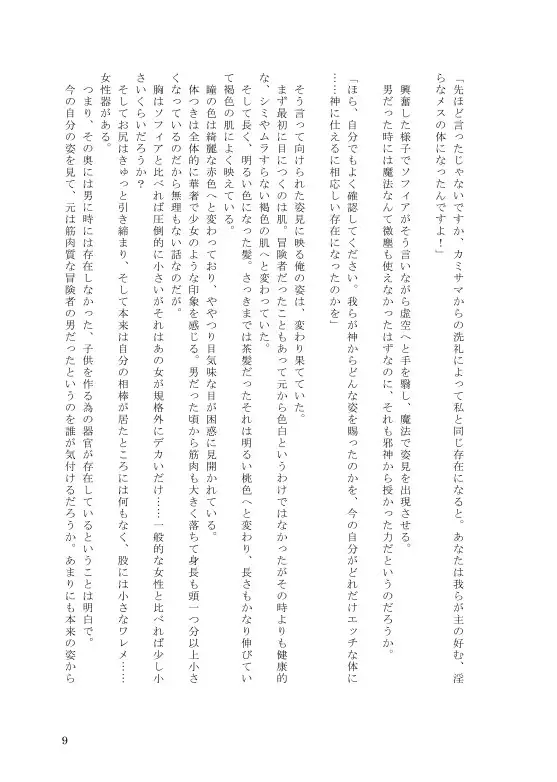 「先ほど言ったじゃないですか、カミサマからの洗礼によって私と同じ存在になると。あなたは我らが主の好む、淫
らなメスの体になったんですよ！」
興奮した様子でソフィアがそう言いながら虚空へと手を翳し、魔法で姿見を出現させる。
男だった時には魔法なんて微塵も使えなかったはずなのに、それも邪神から授かった力だというのだろうか。
「ほら、自分でもよく確認してください。我らが神からどんな姿を賜ったのかを、今の自分がどれだけエッチな体に
……神に仕えるに相応しい存在になったのかを」
そう言って向けられた姿見に映る俺の姿は、変わり果てていた。
まず最初に目につくのは肌。冒険者だったこともあって元から色白というわけではなかったがその時よりも健康的
な、シミやムラすらない褐色の肌へと変わっていた。
そして長く、明るい色になった髪。さっきまでは茶髪だったそれは明るい桃色へと変わり、長さもかなり伸びてい
て褐色の肌によく映えている。
瞳の色は綺麗な赤色へと変わっており、ややつり目気味な目が困惑に見開かれている。
体つきは全体的に華奢で少女のような印象を感じる。男だった頃から筋肉も大きく落ちて身長も頭一つ分以上小さ
くなっているのだから無理もない話なのだが。
胸はソフィアと比べれば圧倒的に小さいがそれはあの女が規格外にデカいだけ……一般的な女性と比べれば少し小
さいくらいだろうか？
そしてお尻はきゅっと引き締まり、そして本来は自分の相棒が居たところには何もなく、股には小さなワレメ……
女性器がある。
つまり、その奥には男に時には存在しなかった、子供を作る為の器官が存在しているということは明白で。
今の自分の姿を見て、元は筋肉質な冒険者の男だったというのを誰が気付けるだろうか。あまりにも本来の姿から
9